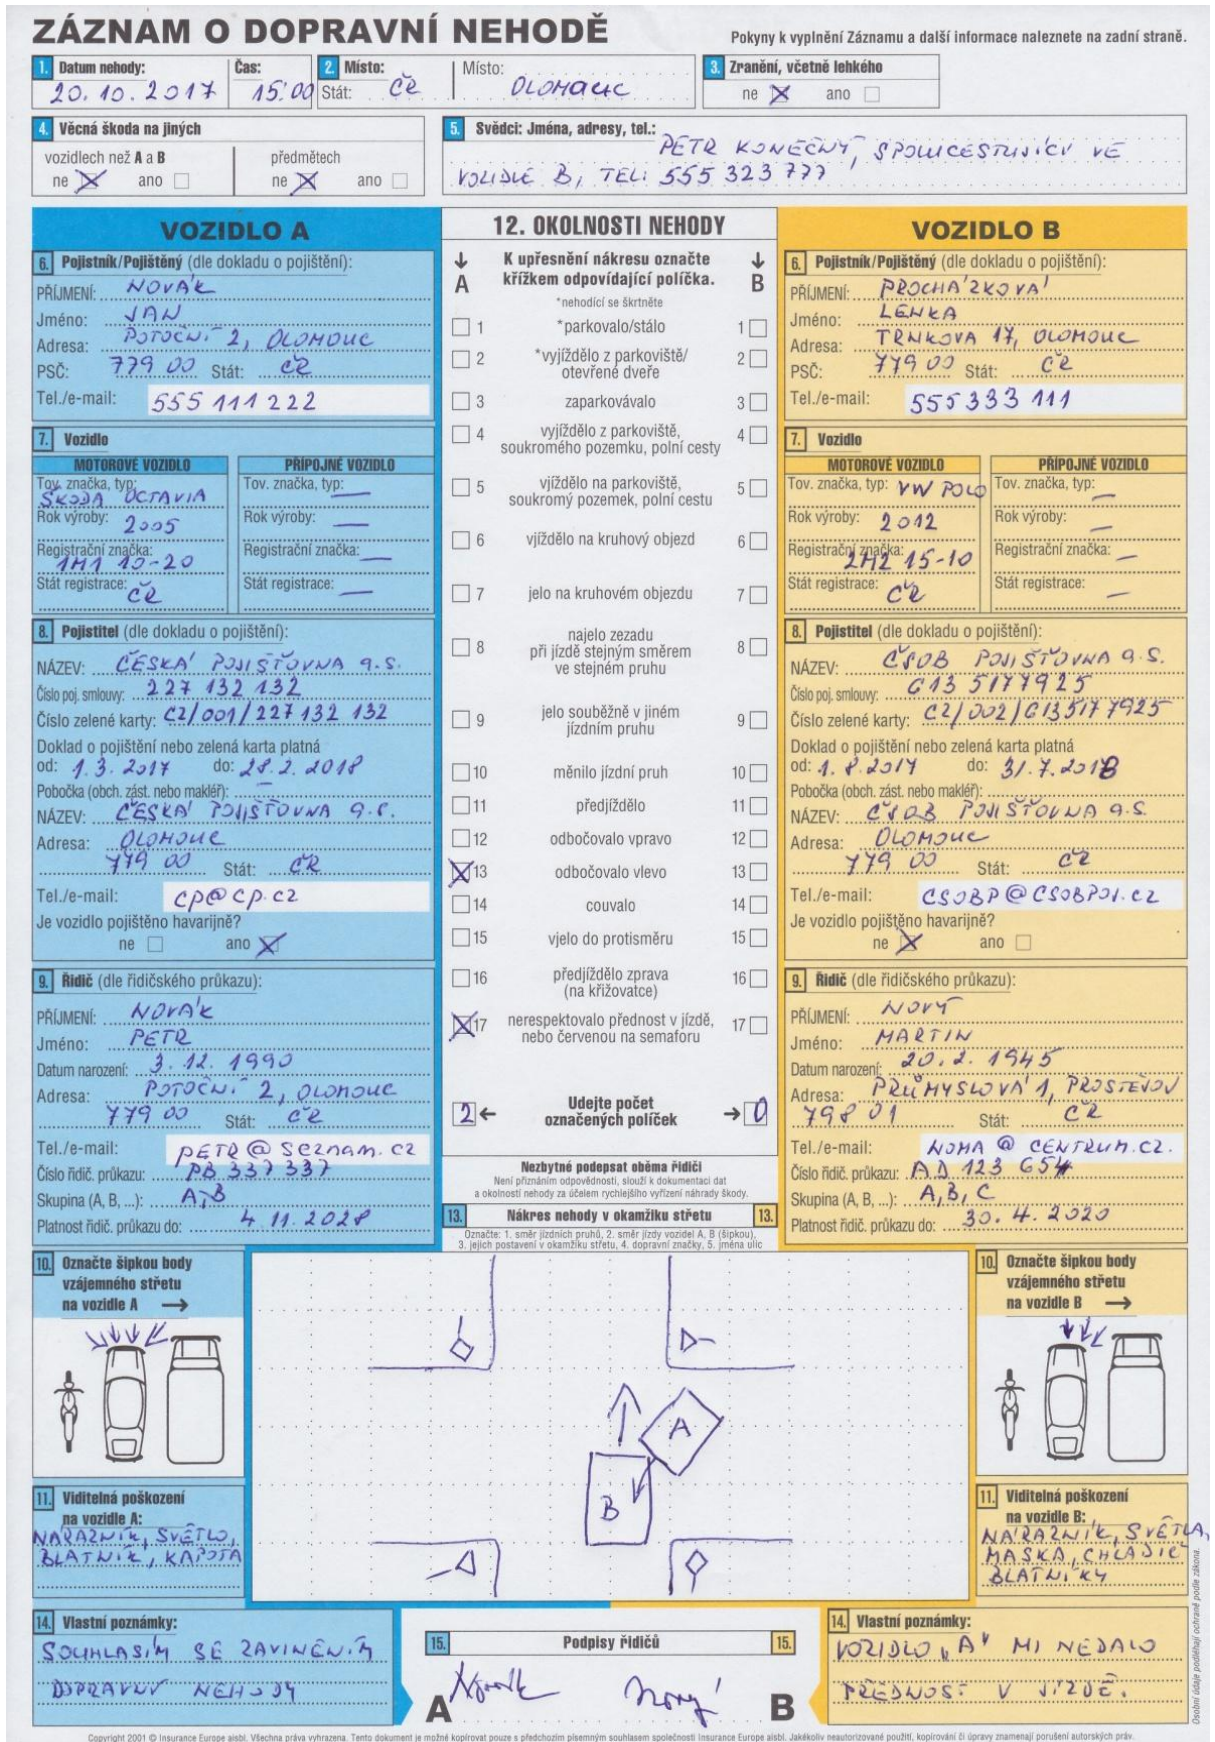 ZÁZNAM O DOPRAVNÍ NEHODĚ
Pokyny k vyplnění Záznamu a další informace naleznete na zadní straně.
1. Datum nehody: Čas:
20.10.2017 15:00
2. Místo:
Stát: ČR
Místo:
OLOMOUC
3. Zranění, včetně lehkého
ne ano
4. Věcná škoda na jiných
vozidlech než A a B předmětech
ne ano ne ano
5. Svědci: Jména, adresy, tel.:
PETR KONEČNÝ, SPOLUCESTUJÍCÍ VE
VOZIDLE B, TEL: 555 323 777
VOZIDLO A
6. Pojistník/Pojištěný (dle dokladu o pojištění):
PŘÍJMENÍ: NOVÁK
Jméno: JAN
Adresa: POTOČNÍ 2, OLOMOUC
PSČ: 779 00 Stát: ČR
Tel./e-mail: 555 111 222
7. Vozidlo
MOTOROVÉ VOZIDLO PŘÍPOJNÉ VOZIDLO
Tov. značka, typ: Tov. značka, typ: —
ŠKODA OCTAVIA
Rok výroby: 2005 Rok výroby: —
Registrační značka: Registrační značka: —
1M1 10-20
Stát registrace: ČR Stát registrace: —
8. Pojistitel (dle dokladu o pojištění):
NÁZEV: ČESKÁ POJIŠŤOVNA a.s.
Číslo poj. smlouvy: 227 132 132
Číslo zelené karty: CZ/001/227 132 132
Doklad o pojištění nebo zelená karta platná
od: 1.3.2017 do: 28.2.2018
Pobočka (obch. zást. nebo makléř): —
NÁZEV: ČESKÁ POJIŠŤOVNA a.s.
Adresa: OLOMOUC
779 00 Stát: ČR
Tel./e-mail: CP@CP.CZ
Je vozidlo pojištěno havarijně?
ne ano
9. Řidič (dle řidičského průkazu):
PŘÍJMENÍ: NOVÁK
Jméno: PETR
Datum narození: 3.12.1990
Adresa: POTOČNÍ 2, OLOMOUC
779 00 Stát: ČR
Tel./e-mail: PETR@SEZNAM.CZ
Číslo řidič. průkazu: PB 337 337
Skupina (A, B, ...): A, B
Platnost řidič. průkazu do: 4.11.2028
10. Označte šipkou body
vzájemného střetu
na vozidle A →
11. Viditelná poškození
na vozidle A:
NÁRAZNÍK, SVĚTLO,
BLATNÍK, KAPOTA
14. Vlastní poznámky:
SOUHLASÍM SE ZAVINĚNÍM
DOPRAVNÍ NEHODY
12. OKOLNOSTI NEHODY
↓ A K upřesnění nákresu označte ↓ B
křížkem odpovídající políčka.
*nehodící se škrtněte
1 *parkovalo/stálo 1
2 *vyjíždělo z parkoviště/ 2
otevřené dveře
3 zaparkovávalo 3
4 vyjíždělo z parkoviště, 4
soukromého pozemku, polní cesty
5 vjíždělo na parkoviště, 5
soukromý pozemek, polní cestu
6 vjíždělo na kruhový objezd 6
7 jelo na kruhovém objezdu 7
8 najelo zezadu 8
při jízdě stejným směrem
ve stejném pruhu
9 jelo souběžně v jiném 9
jízdním pruhu
10 měnilo jízdní pruh 10
11 předjíždělo 11
12 odbočovalo vpravo 12
13 odbočovalo vlevo 13
14 couvalo 14
15 vjelo do protisměru 15
16 předjíždělo zprava 16
(na křižovatce)
17 nerespektovalo přednost v jízdě, 17
nebo červenou na semaforu
2 ← Udejte počet → 0
označených políček
Nezbytné podepsat oběma řidiči
Není přiznáním odpovědnosti, slouží k dokumentaci dat
a okolností nehody za účelem rychlejšího vyřízení náhrady škody.
13. Nákres nehody v okamžiku střetu 13.
Označte: 1. směr jízdních pruhů, 2. směr jízdy vozidel A, B (šipkou),
3. jejich postavení v okamžiku střetu, 4. dopravní značky, 5. jména ulic
A
B
15. Podpisy řidičů 15.
A Novák Nový B
VOZIDLO B
6. Pojistník/Pojištěný (dle dokladu o pojištění):
PŘÍJMENÍ: PROCHÁZKOVÁ
Jméno: LENKA
Adresa: TRNKOVA 17, OLOMOUC
PSČ: 779 00 Stát: ČR
Tel./e-mail: 555 333 111
7. Vozidlo
MOTOROVÉ VOZIDLO PŘÍPOJNÉ VOZIDLO
Tov. značka, typ: VW POLO Tov. značka, typ: —
Rok výroby: 2012 Rok výroby: —
Registrační značka: Registrační značka: —
2M2 15-10
Stát registrace: ČR Stát registrace: —
8. Pojistitel (dle dokladu o pojištění):
NÁZEV: ČSOB POJIŠŤOVNA a.s.
Číslo poj. smlouvy: 613 5177925
Číslo zelené karty: CZ/002/6135177925
Doklad o pojištění nebo zelená karta platná
od: 1.8.2017 do: 31.7.2018
Pobočka (obch. zást. nebo makléř):
NÁZEV: ČSOB POJIŠŤOVNA a.s.
Adresa: OLOMOUC
779 00 Stát: ČR
Tel./e-mail: CSOBP@CSOBPOJ.CZ
Je vozidlo pojištěno havarijně?
ne ano
9. Řidič (dle řidičského průkazu):
PŘÍJMENÍ: NOVÝ
Jméno: MARTIN
Datum narození: 20.2.1945
Adresa: PRŮMYSLOVÁ 1, PROSTĚJOV
798 01 Stát: ČR
Tel./e-mail: NOMA@CENTRUM.CZ.
Číslo řidič. průkazu: AD 123 654
Skupina (A, B, ...): A, B, C
Platnost řidič. průkazu do: 30.4.2020
10. Označte šipkou body
vzájemného střetu
na vozidle B →
11. Viditelná poškození
na vozidle B:
NÁRAZNÍK, SVĚTLA,
MASKA, CHLADIČ
BLATNÍKY
14. Vlastní poznámky:
VOZIDLO "A" MI NEDALO
PŘEDNOST V JÍZDĚ.
Osobní údaje podléhají ochraně podle zákona.
Copyright 2001 © Insurance Europe aisbl. Všechna práva vyhrazena. Tento dokument je možné kopírovat pouze s předchozím písemným souhlasem společnosti Insurance Europe aisbl. Jakékoliv neautorizované použití, kopírování či úpravy znamenají porušení autorských práv.